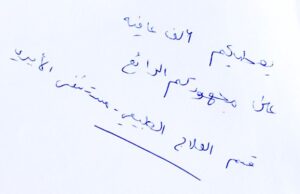 يعطيكم الف عافيه
على مجهودكم الرائع
قسم العلاج الطبيعي - مستشفى الأميري